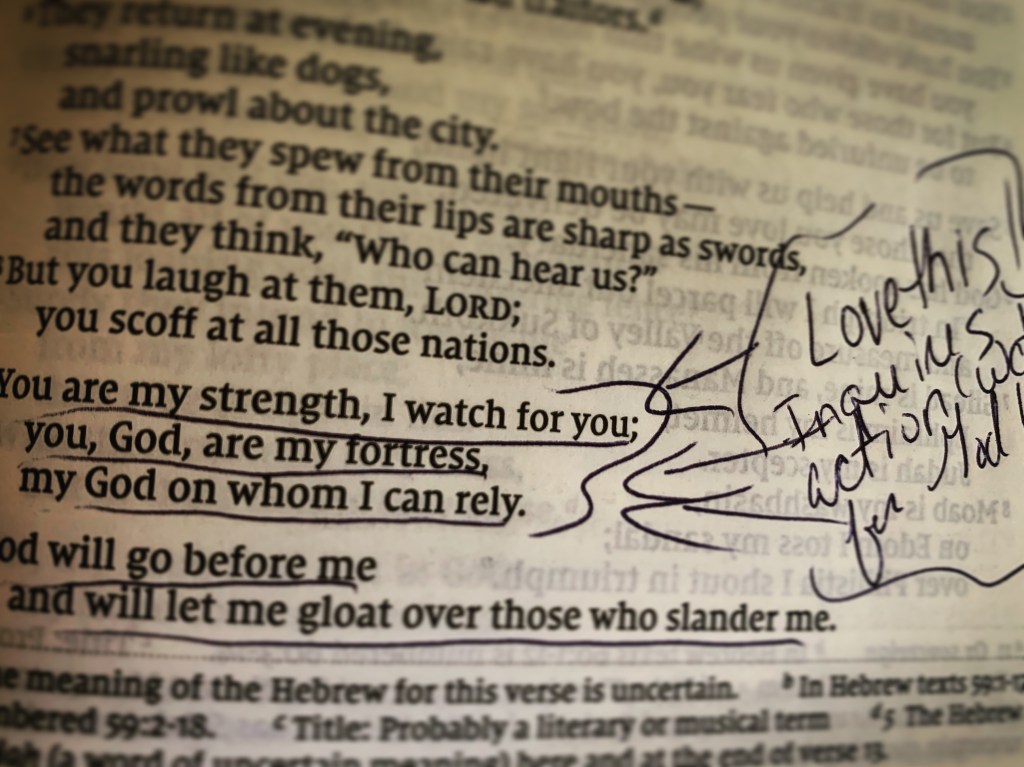 traitors.
They return at evening,
snarling like dogs,
and prowl about the city.
7See what they spew from their mouths—
the words from their lips are sharp as swords,
and they think, “Who can hear us?”
8But you laugh at them, LORD;
you scoff at all those nations.
You are my strength, I watch for you;
you, God, are my fortress,
my God on whom I can rely.
od will go before me
and will let me gloat over those who slander me.
Love this!
Inquires
action
for God!
e meaning of the Hebrew for this verse is uncertain. b In Hebrew texts 59:1-17
mbered 59:2-18. c Title: Probably a literary or musical term d 5 The Hebrew
(a word of uncertain meaning) here and at the end of verse 13.